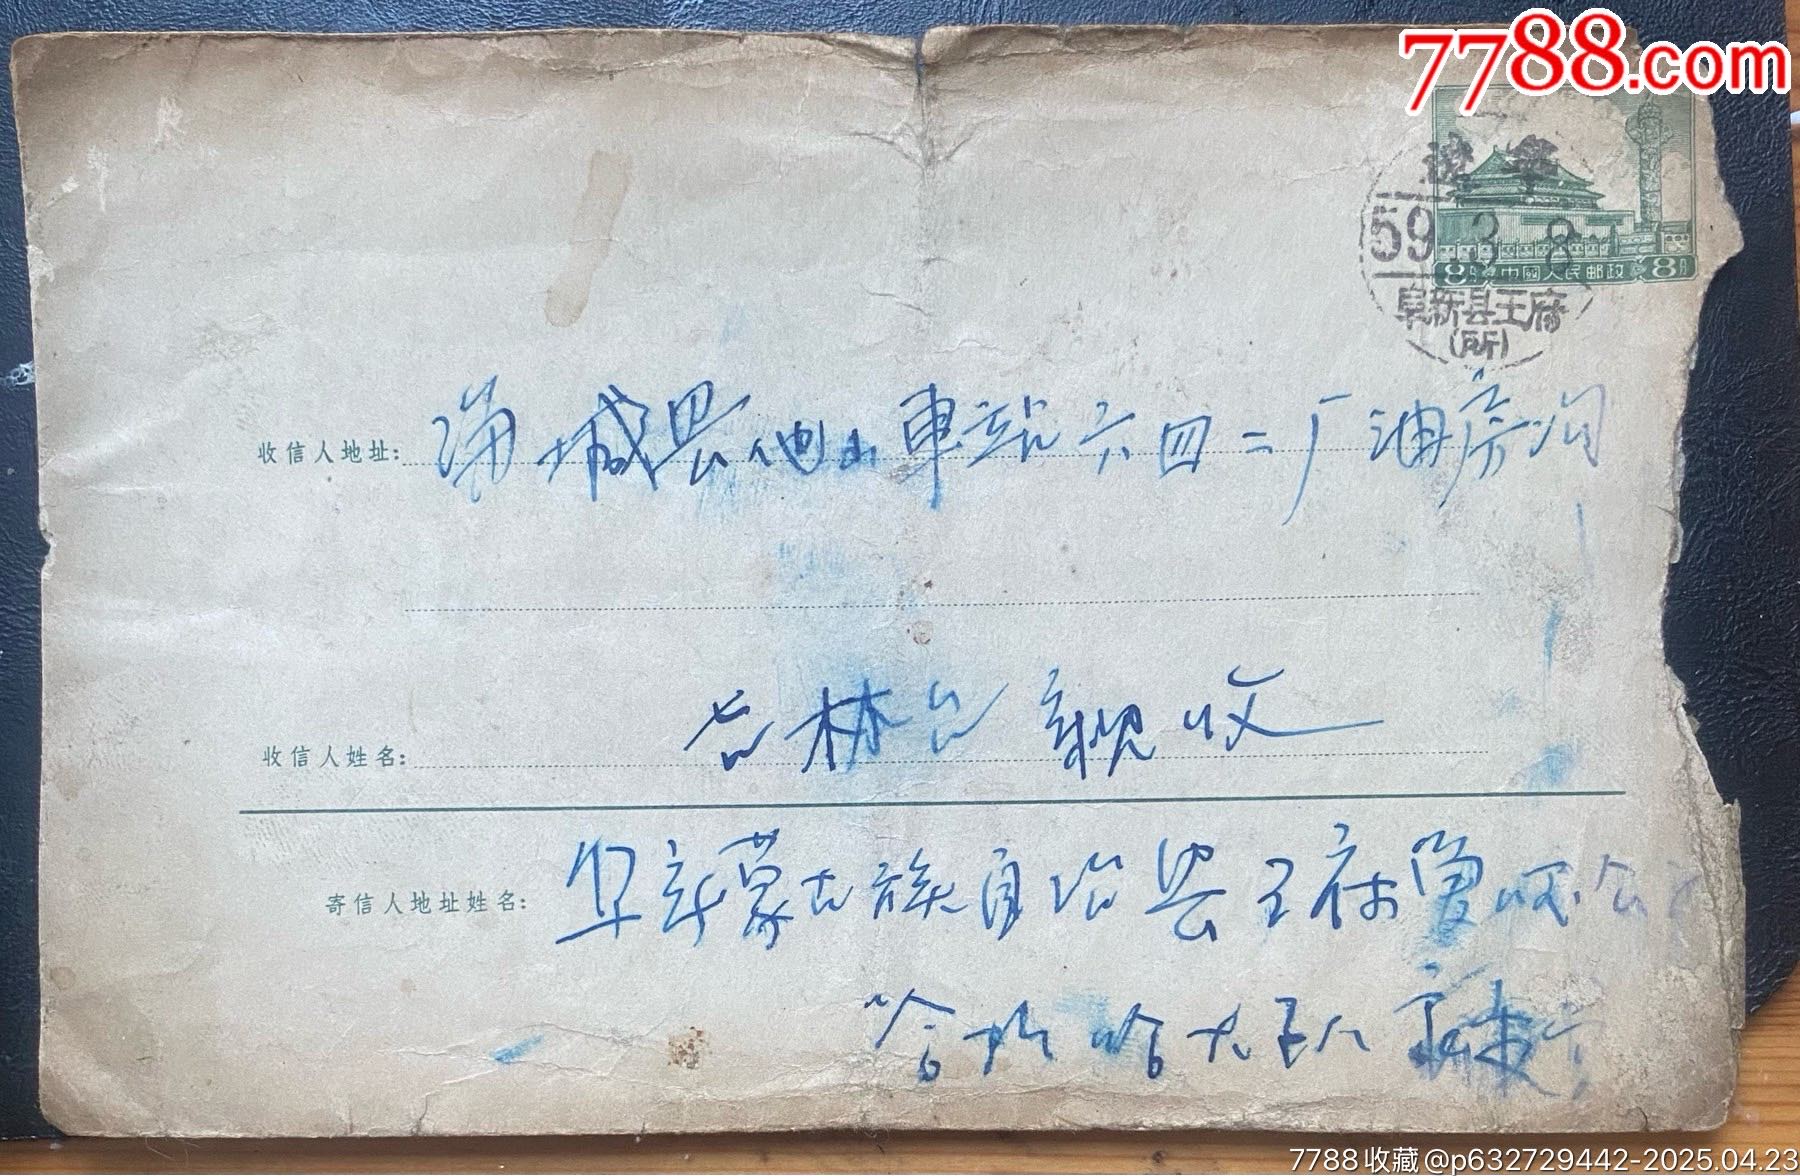 7788.com
遼寧
59.3.8
阜新县王府
(所)
8分 中國人民邮政 8分
收信人地址: 蒲城县 車站六四二厂油房沟
收信人姓名: 林 親收
寄信人地址姓名: 阜新蒙古族自治县王府 公
哈 哈大队
7788收藏@p632729442-2025.04.23